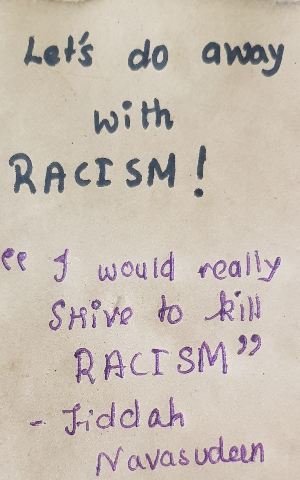 Let's do away
with
RACISM!
"I would really
SHive to kill
RACISM"
- Jiddah
Navasudeen